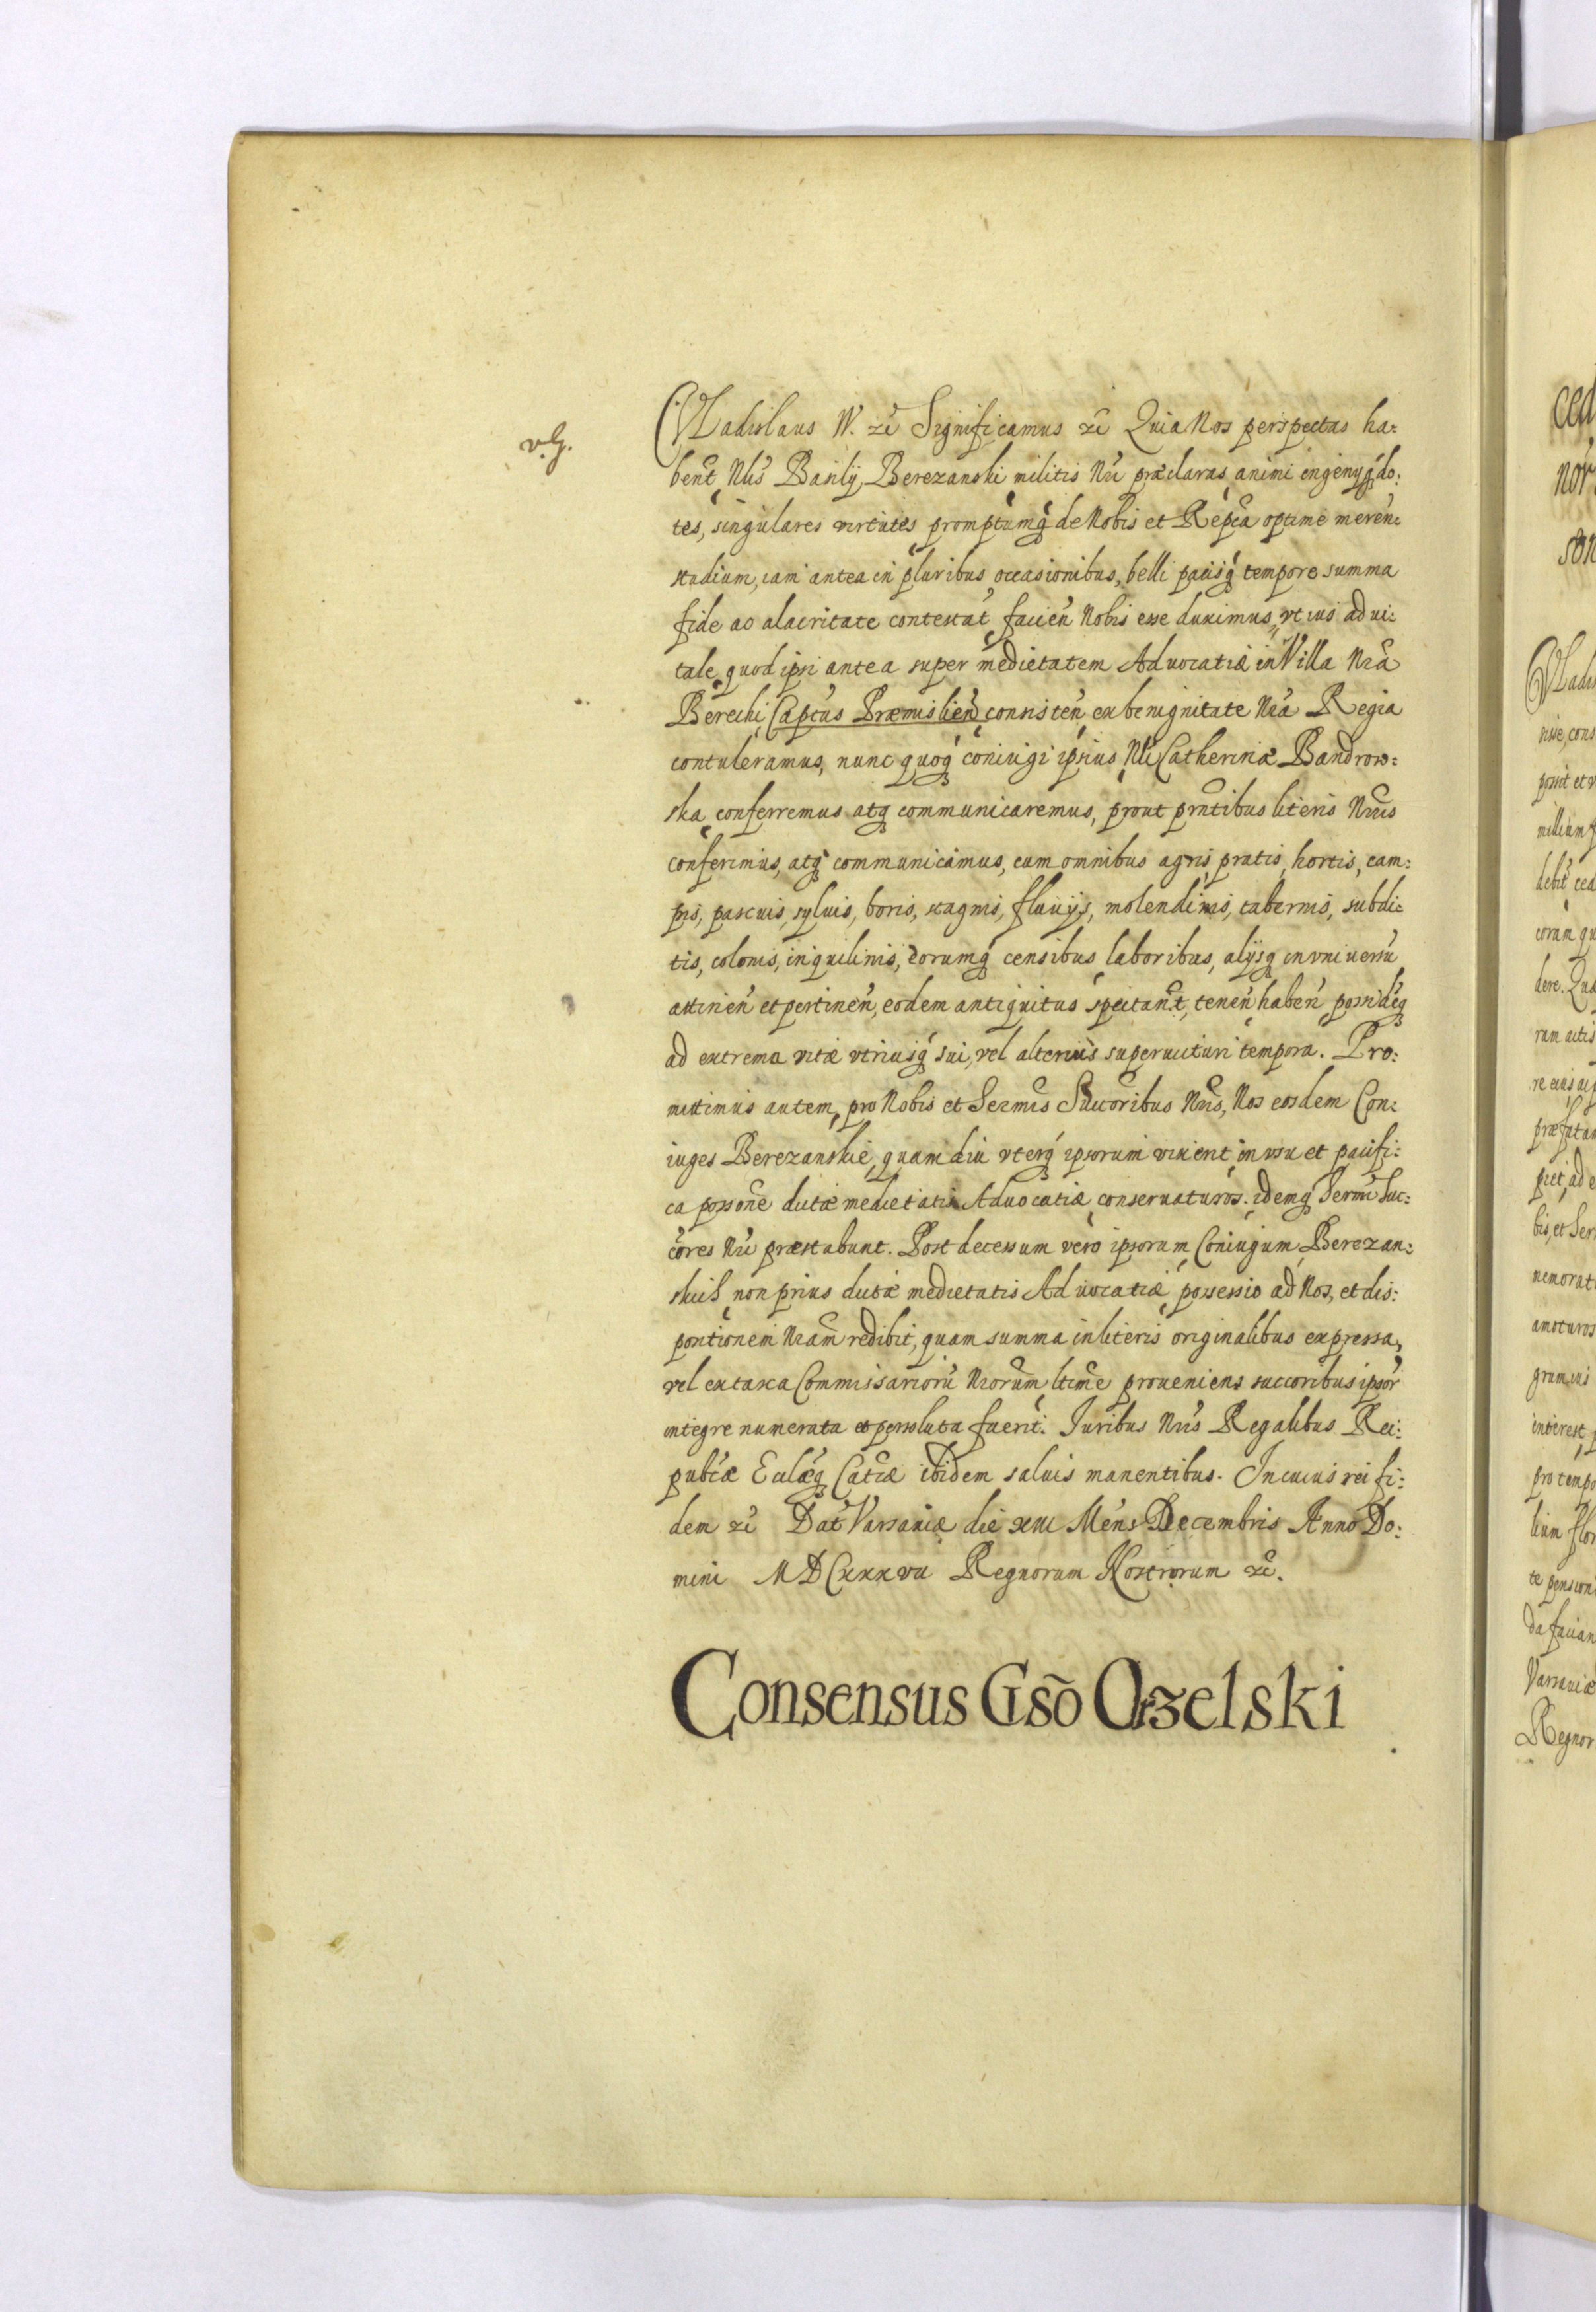 v. G.
Vladislaus IV. etc̃ Significamus etc̃ Quia Nos perspectas ha:
bent̃ Nlis̃ Basilij Berezanski militis Nr̃i præclaras animi ingenyq́ do:
tes, singulares virtutes promptumq́ de Nobis et Repca optime meren̄:
studium, iam antea in pluribus occasionibus, belli pacisq́ tempore summa
fide ac alacritate contestat̃ facien̄ Nobis esse duximus, vt ius ad vi:
tale quod ipsi antea super medietatem Aduocatiæ in Villa Nrã
Berechi Captũs Præmislien̄ consisten̄ ex benignitate Nrã Regia
contuleramus, nunc quoq́ coniugi ipsius Nli Catherinæ Bandrow:
ska conferremus atq́ communicaremus, prout prñtibus literis Nris̃
conferimus, atq́ communicamus, cum omnibus agris, pratis, hortis, cam:
pis, pascuis, syluis, boris, stagnis, fluuijs, molendinis, tabernis, subdi:
tis, colonis, inquilinis, eorumq́ censibus laboribus, alijsq́ in vniuersũ
attinen̄ et pertinen̄, eodem antiquitus spectant̃, tenen̄ haben̄ possidẽq
ad extrema vitæ vtriusq́ sui, vel alterius superuicturi tempora. Pro:
mittimus autem, pro Nobis et Sermis̃ Succoribus Nris̃, Nos eosdem Con:
iuges Berezanskie, quamdiu vterq́ ipsorum vixerit, in vsu et pacifi:
ca possonẽ dictæ medietatis Aduocatiæ conseruaturos. idemq́ Sermĩ Suc:
cores Nrĩ præstabunt. Post decessum vero ipsorum Coniugum Berezan:
skich non prius dictæ medietatis Aduocatiæ possessio ad Nos, et dis:
positionem Nram̃ redibit, quam summa in literis originalibus expressa,
vel ex taxa Commissariorũ Nrorum̃ ltimẽ proueniens succoribus ipsor̃
integre numerata et persoluta fuerit. Iuribus Nris̃ Regalibus Rei:
publcæ Ecclæq́ Catcæ ibidem saluis manentibus. In cuius rei fi:
dem etc̃ Dat̃ Varsauiæ die XIII Mens̃ Decembris Anno Do:
mini MDCXXXVII Regnorum Nostrorum etc̃.
Consensus Gsõ Orzelski